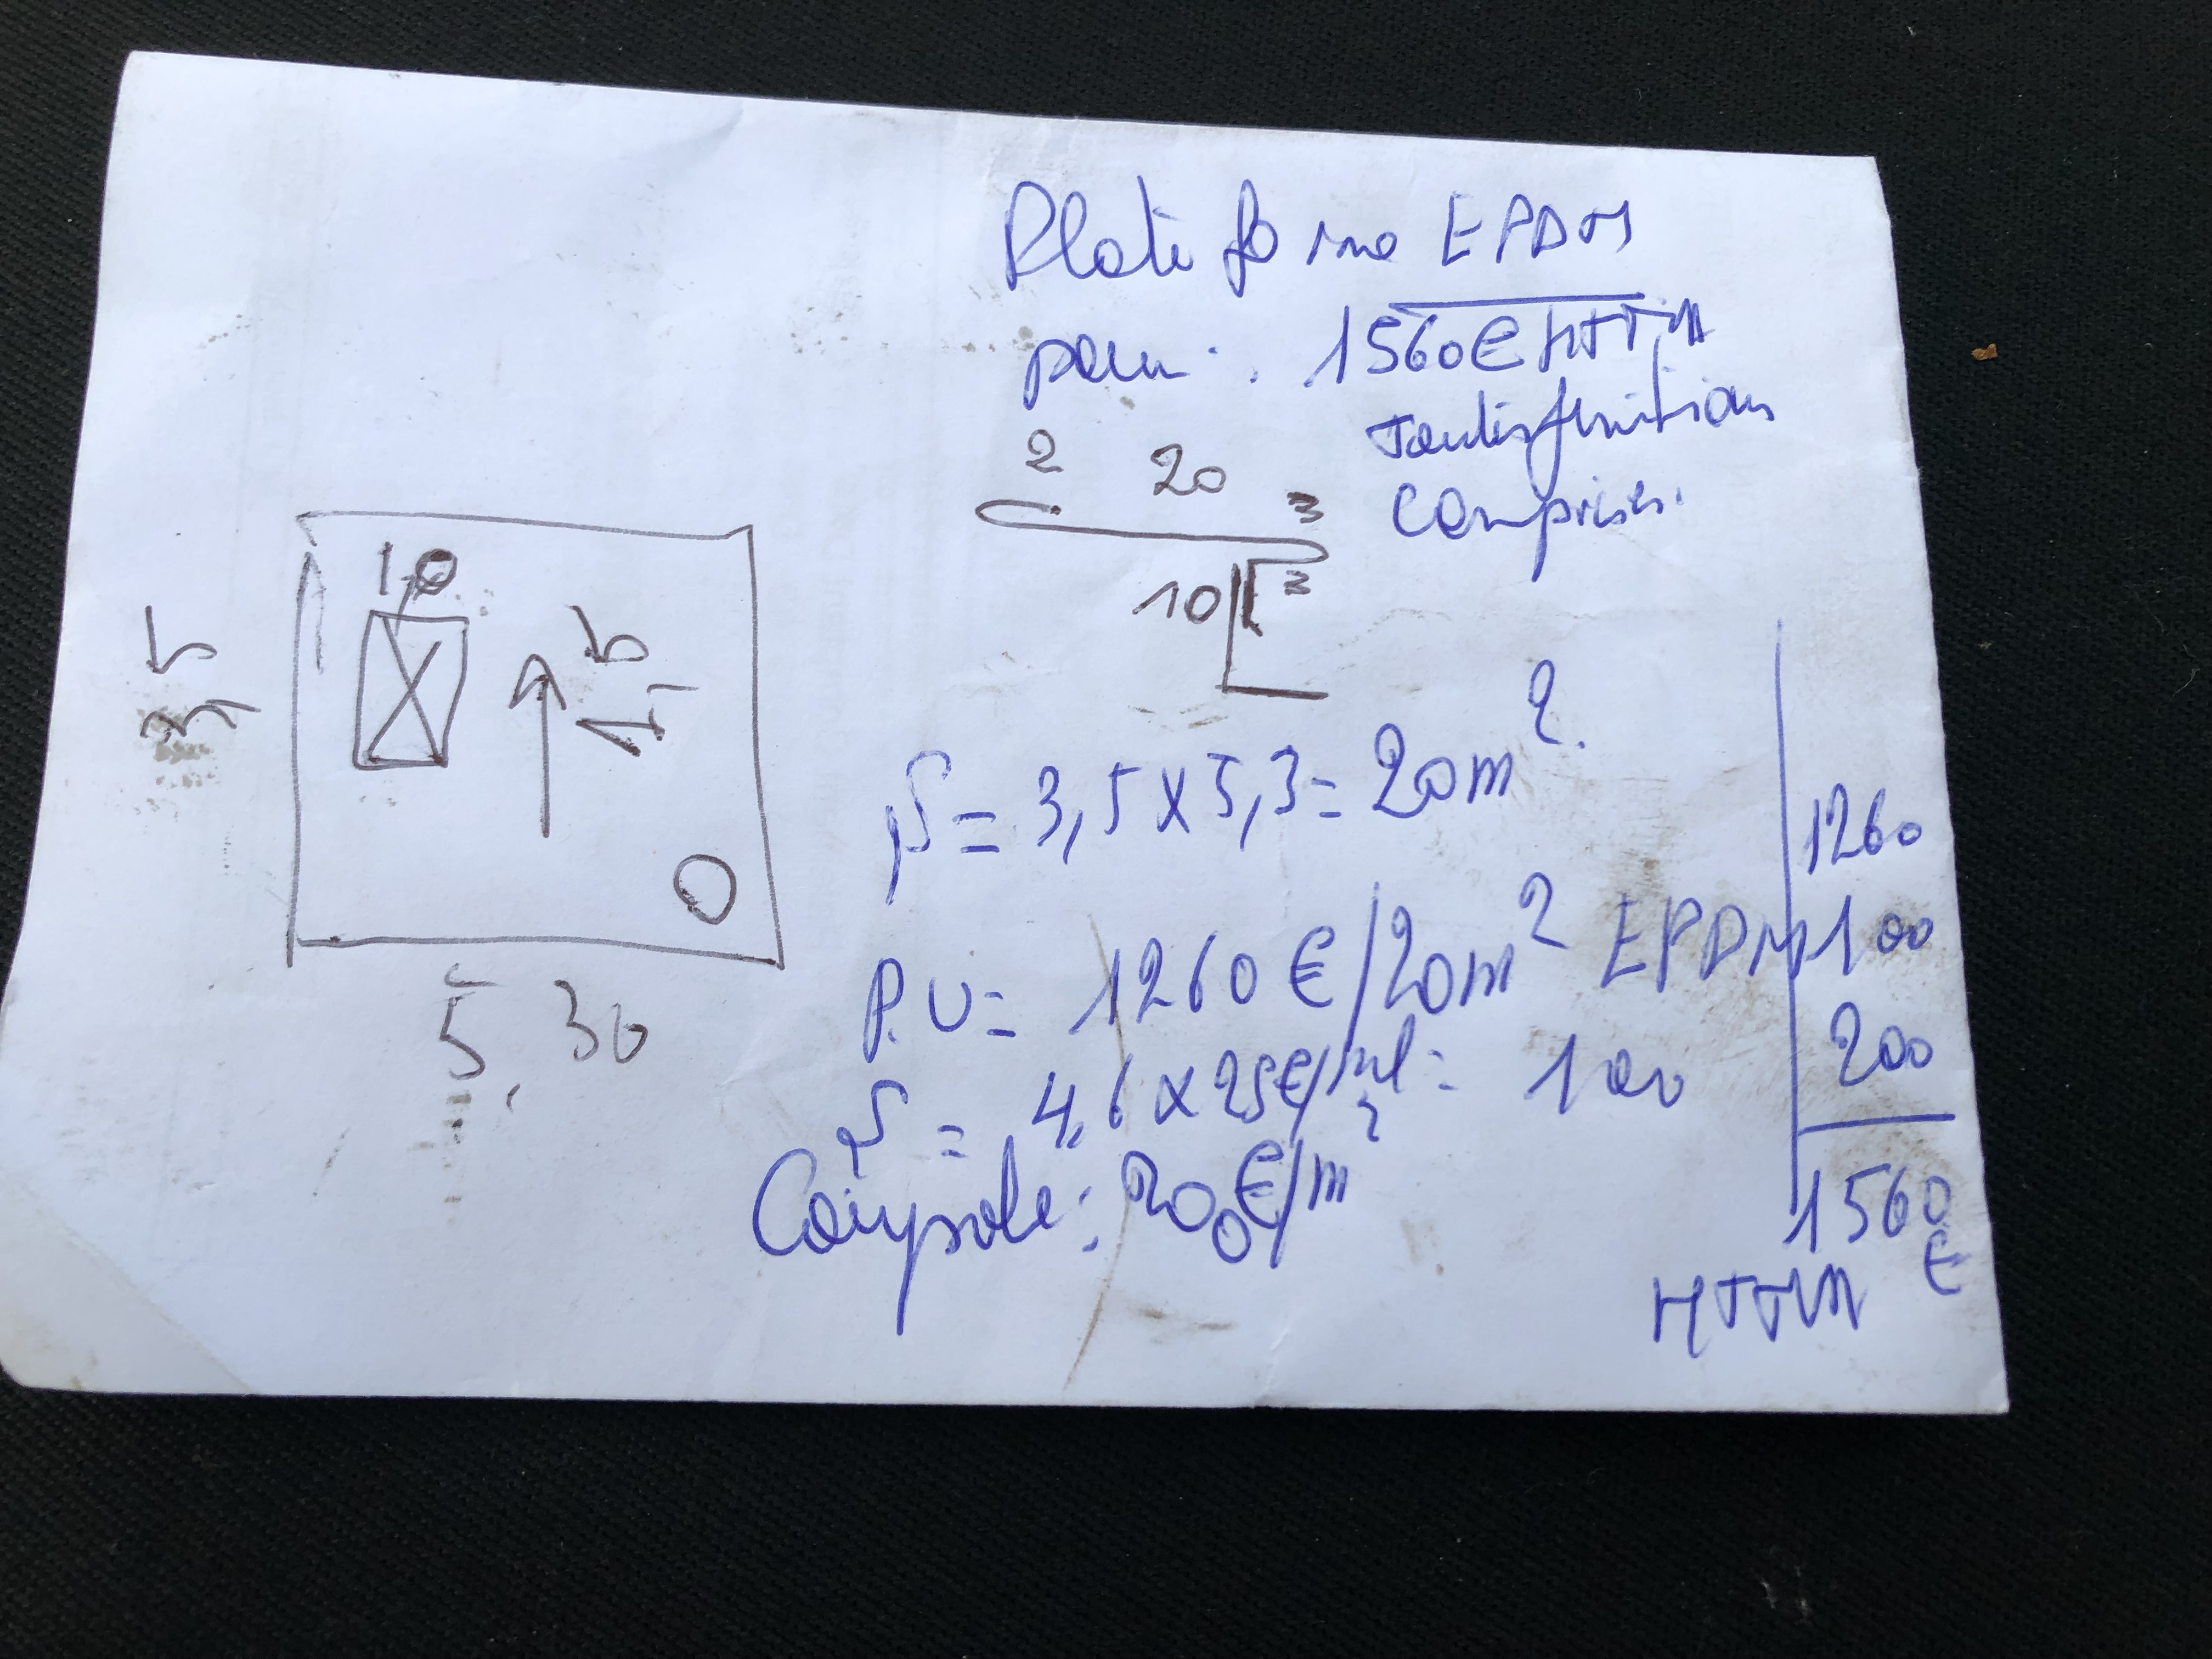 Plate forme EPDM
pour : 1560€ HTTVA
toutes finitions
comprises.
2 20 3
10 3
10
3,5
1,5
5,30
S = 3,5 x 5,3 = 20m²
P.U = 1260 €/20m² EPDM
S = 4,6 x 25€/ml = 100
Coupole : 200€/m²
1260
100
200
1560
€
HTTVA